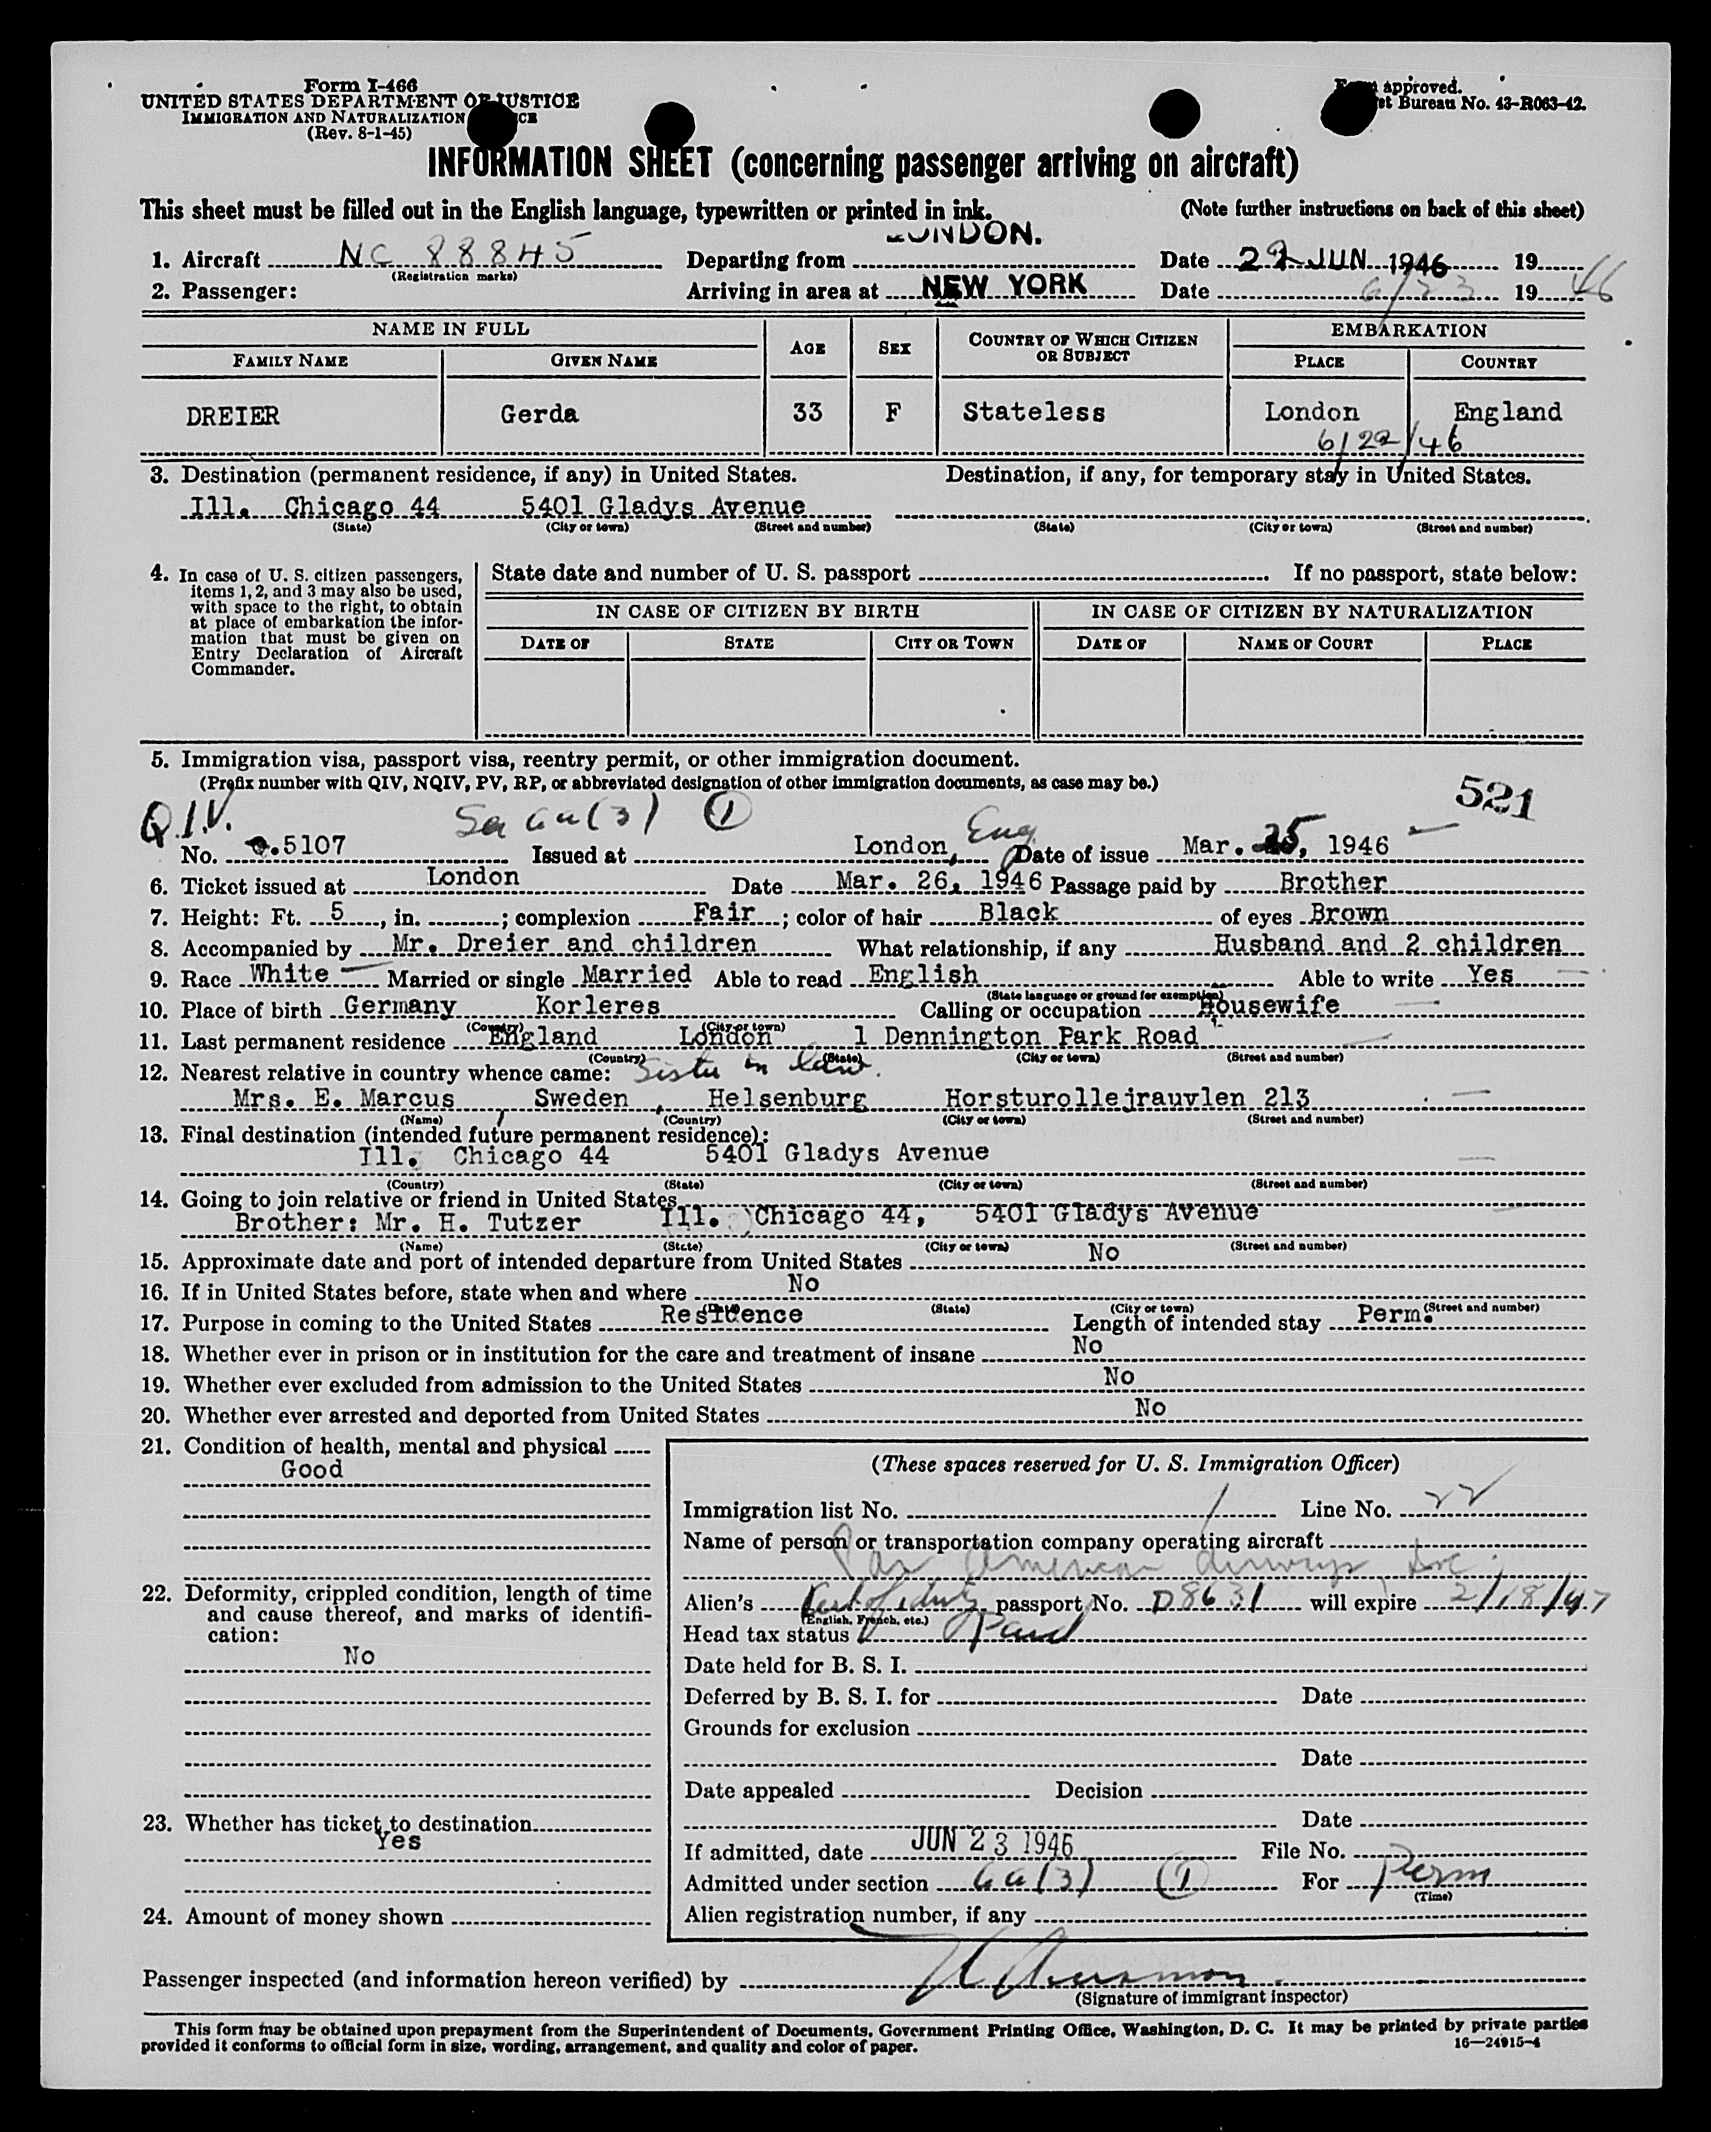 Form I-466
UNITED STATES DEPARTMENT OF JUSTICE
IMMIGRATION AND NATURALIZATION
(Rev. 8-1-45)
Form approved.
Bureau No. 43-R063-42.
INFORMATION SHEET (concerning passenger arriving on aircraft)
This sheet must be filled out in the English language, typewritten or printed in ink. (Note further instructions on back of this sheet)
1. Aircraft NC 88845 Departing from LONDON. Date 22 JUN 1946 19
(Registration marks)
2. Passenger: Arriving in area at NEW YORK Date 6/23 19 46
NAME IN FULL AGE SEX COUNTRY OF WHICH CITIZEN OR SUBJECT EMBARKATION
FAMILY NAME GIVEN NAME PLACE COUNTRY
DREIER Gerda 33 F Stateless London England
6/22/46
3. Destination (permanent residence, if any) in United States. Destination, if any, for temporary stay in United States.
Ill. Chicago 44 5401 Gladys Avenue
(State) (City or town) (Street and number) (State) (City or town) (Street and number)
4. In case of U. S. citizen passengers, items 1, 2, and 3 may also be used, with space to the right, to obtain at place of embarkation the information that must be given on Entry Declaration of Aircraft Commander.
State date and number of U. S. passport If no passport, state below:
IN CASE OF CITIZEN BY BIRTH IN CASE OF CITIZEN BY NATURALIZATION
DATE OF STATE CITY OR TOWN DATE OF NAME OF COURT PLACE
5. Immigration visa, passport visa, reentry permit, or other immigration document.
(Prefix number with QIV, NQIV, PV, RP, or abbreviated designation of other immigration documents, as case may be.)
521
Q.I.V. Sec 6a(3) (1)
No. 5107 Issued at London, Eng Date of issue Mar. 25, 1946
6. Ticket issued at London Date Mar. 26, 1946 Passage paid by Brother
7. Height: Ft. 5, in. ; complexion Fair ; color of hair Black of eyes Brown
8. Accompanied by Mr. Dreier and children What relationship, if any Husband and 2 children
9. Race White Married or single Married Able to read English Able to write Yes
(State language or ground for exemption)
10. Place of birth Germany Korleres Calling or occupation Housewife
(Country) (City or town)
11. Last permanent residence England London 1 Dennington Park Road
(Country) (State) (City or town) (Street and number)
12. Nearest relative in country whence came: Sister in law.
Mrs. E. Marcus Sweden, Helsenburg Horsturollejrauvlen 213
(Name) (Country) (City or town) (Street and number)
13. Final destination (intended future permanent residence):
Ill. Chicago 44 5401 Gladys Avenue
(Country) (State) (City or town) (Street and number)
14. Going to join relative or friend in United States
Brother: Mr. H. Tutzer Ill. Chicago 44, 5401 Gladys Avenue
(Name) (State) (City or town) (Street and number)
15. Approximate date and port of intended departure from United States No
16. If in United States before, state when and where No
(State) (City or town) (Street and number)
17. Purpose in coming to the United States Residence Length of intended stay Perm.
18. Whether ever in prison or in institution for the care and treatment of insane No
19. Whether ever excluded from admission to the United States No
20. Whether ever arrested and deported from United States No
21. Condition of health, mental and physical
Good
22. Deformity, crippled condition, length of time and cause thereof, and marks of identification:
No
23. Whether has ticket to destination
Yes
24. Amount of money shown
(These spaces reserved for U. S. Immigration Officer)
Immigration list No. 1 Line No. 22
Name of person or transportation company operating aircraft
Pan American Airways Inc.
Alien's Cert of identy passport No. D8631 will expire 2/18/47
(English, French, etc.)
Head tax status Paid
Date held for B. S. I.
Deferred by B. S. I. for Date
Grounds for exclusion
Date
Date appealed Decision
Date
If admitted, date JUN 23 1946 File No.
Admitted under section 6a(3) (1) For Perm
(Time)
Alien registration number, if any
Passenger inspected (and information hereon verified) by
(Signature of immigrant inspector)
This form may be obtained upon prepayment from the Superintendent of Documents, Government Printing Office, Washington, D. C. It may be printed by private parties
provided it conforms to official form in size, wording, arrangement, and quality and color of paper. 16—24915-4